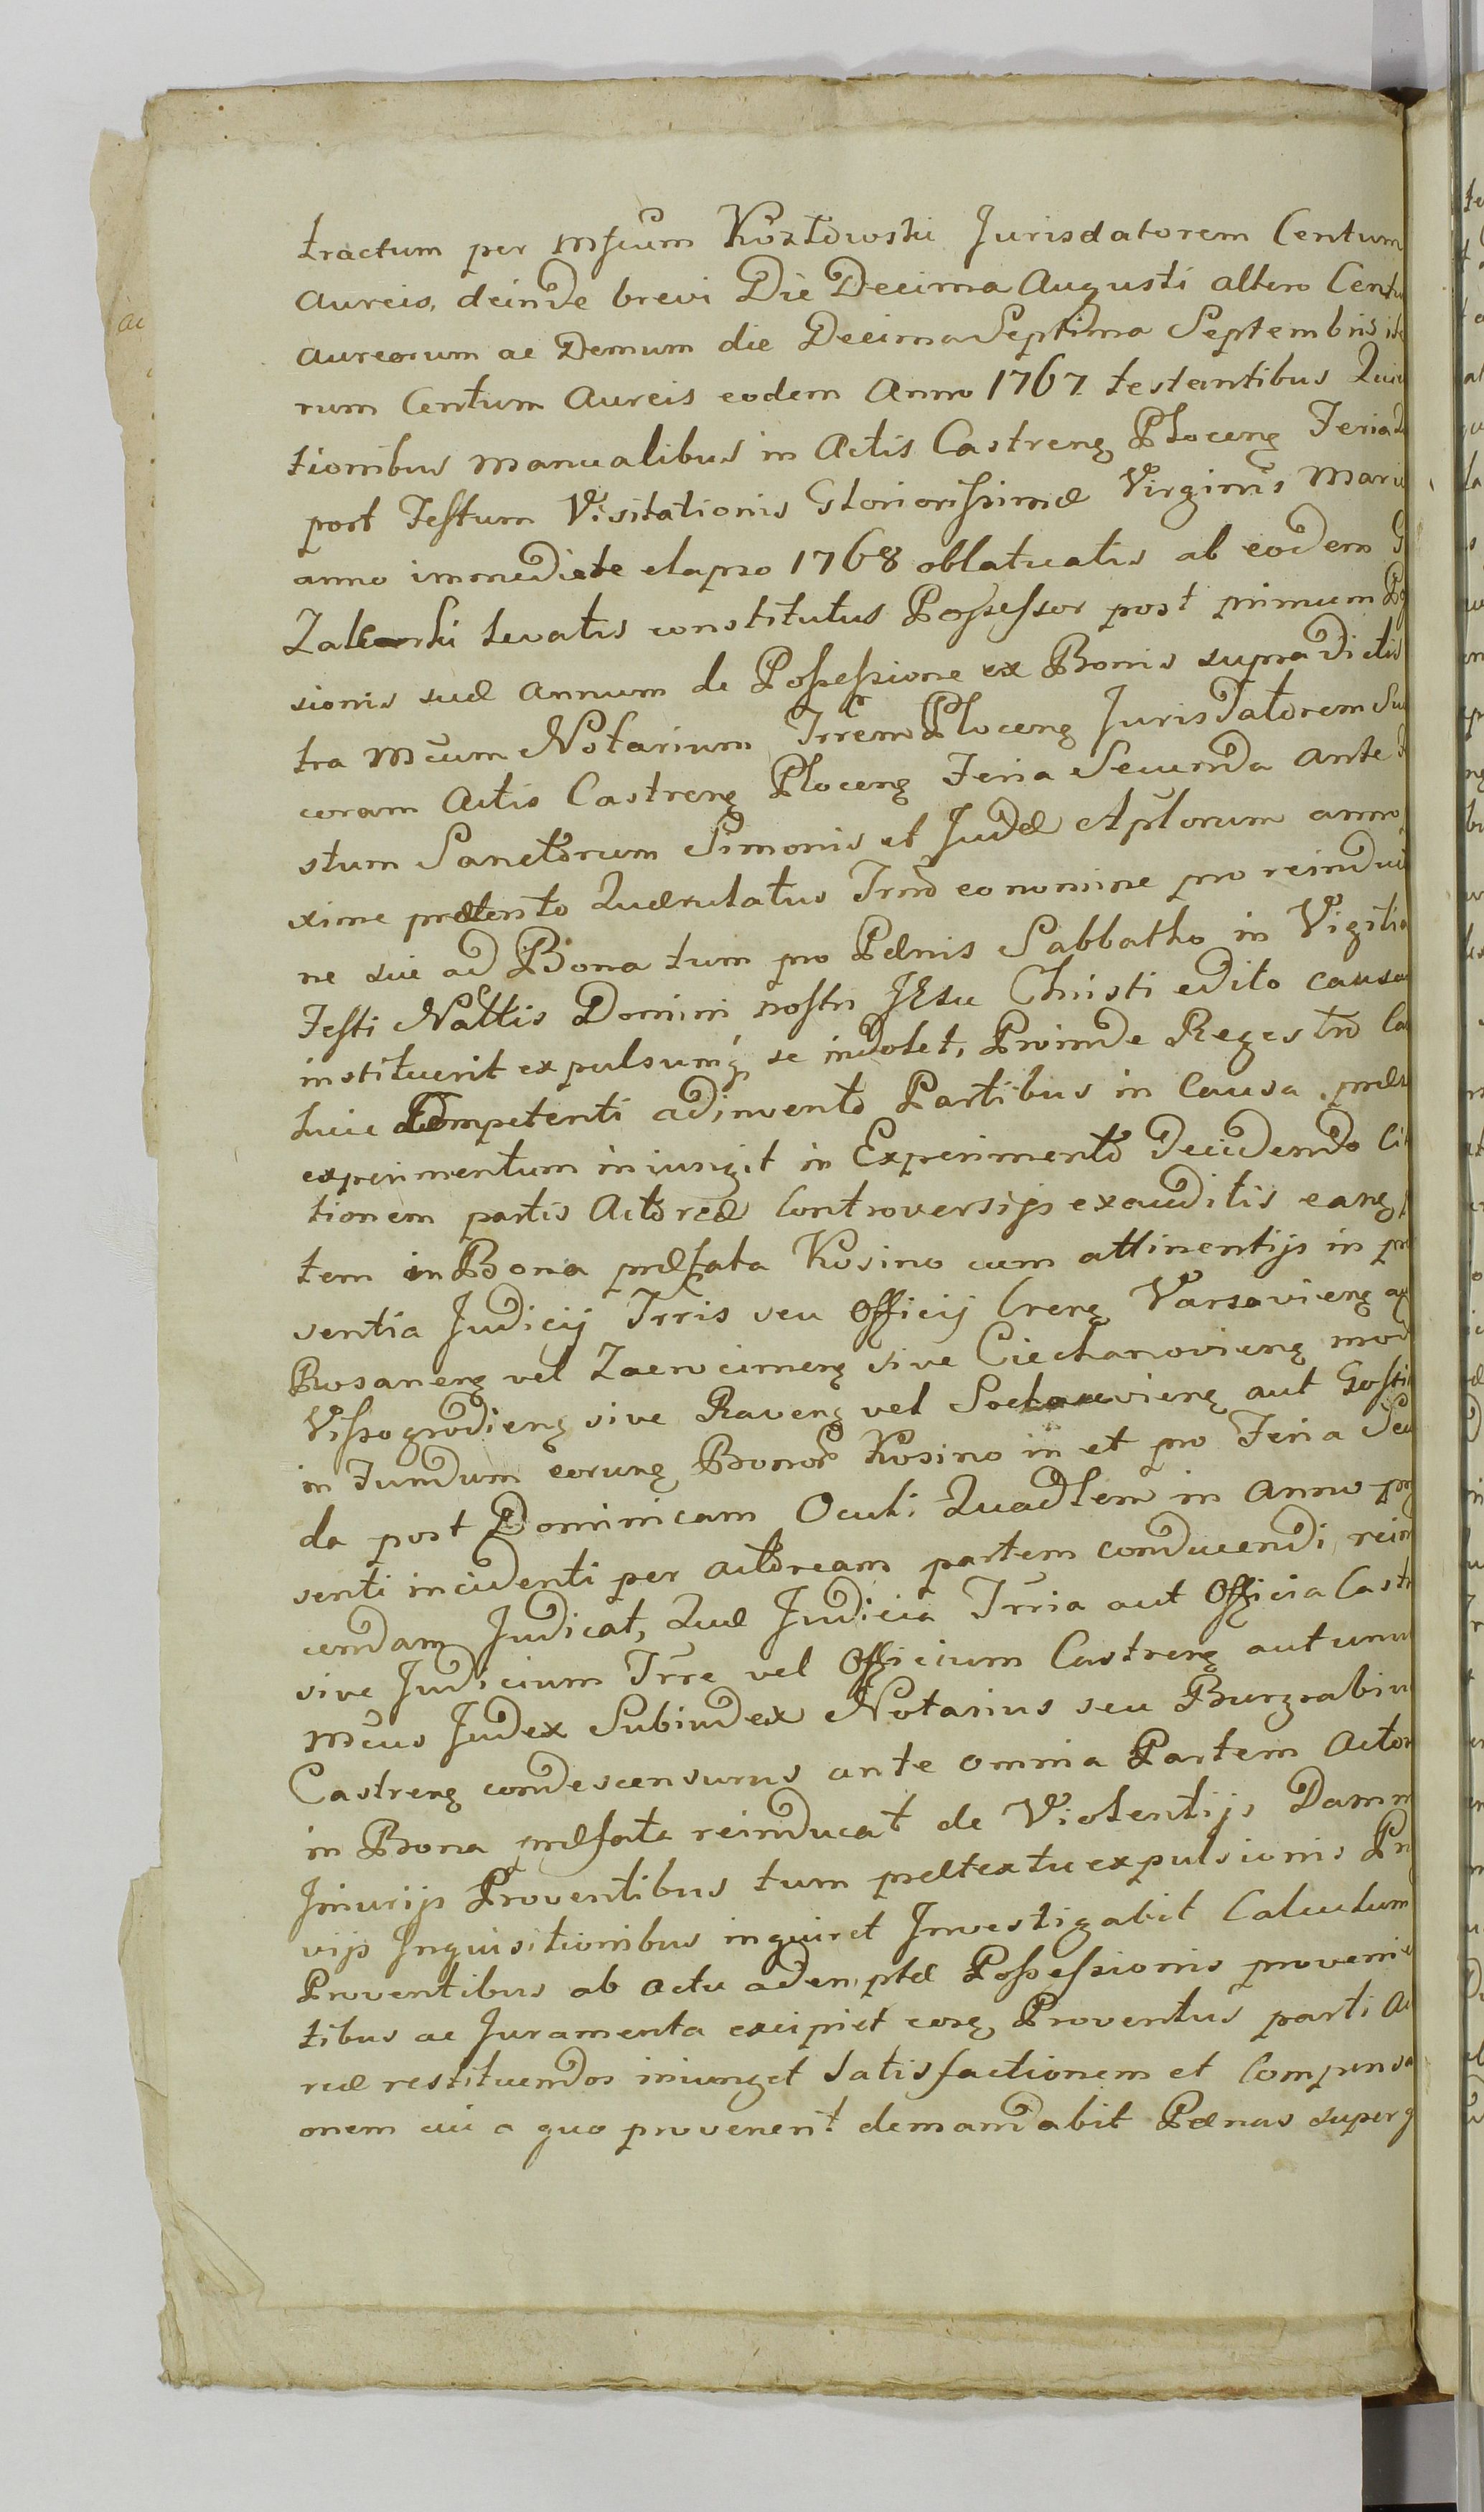 tractum per Mſcum Kozłowski Jurisdatorem Centum
Aureis, deinde brevi Die Decima Augusti altero Centu
aureorum ac Demum die Decima Septima Septembris ite
rum Centum Aureis eodem Anno 1767 testantibus Quie
tionibus manualibus in Actis Castreng Ploceng Feria
post Festum Visitationis Gloriosissimæ Virginis Mari
anno immediate elapso 1768 oblatuatis ab eodem G
Zaleski levatis constitutus Possessor post primum
sionis suæ annum de Possessione ex Bonis supradictis
tra Mcum Notarium Trrem Ploceng Jurisdatorem Su
coram Actis Castreng Ploceng Feria Secunda ante
stum Sanctorum Simonis et Judæ Aplorum anno
xime prætento Quærulatus Trno eo nomine pro reindu
ne sui ad Bona tum pro Pænis Sabbatho in Vigilia
Festi Nattis Domini nostri JEsu Christi edito causa
instituerit expulsumq se indolet, Proinde Regestro
huic Competenti adinvento Partibus in Causa præs
experimentum iniungit in Experimento Decidendo Ci
tionem partis Actoreæ Controversijs exauditis eanq
tem in Bona præfata Kosino cum attinentijs in præ
sentia Judicij Trris seu Officij Creng Varsavieng
Rosaneng vel Zacrocimeng sive Ciechanovieng
Vissogrodieng sive Raveng vel Sochauvieng aut Gosti
in Fundum eorunq Bonor Kosino in et pro Feria Secu
da post Dominicam Oculi Quadlem in Anno præ
senti incidenti per actoream partem conducendi rein
cendam Judicat, Quæ Judicia Trria aut Officia Castr
sive Judicium Trre vel Officium Castreng aut unu
Mcus Judex Subiudex Notarius seu Burgrabiu
Castreng condescensurus ante omnia Partem Actor
in Bona præfata reinducat de Violentijs Damn
Jniurijs Proventibus tum prætextu expulsionis
vijs Jnquisitionibus inquiret Jnvestigabit Calculum
Proventibus ab actu ademptæ Possessionis proveni
tibus ac Juramenta excipiet eosq Proventus parti Ac
reæ restituendos iniunget Satisfactionem et Compensa
onem cui a quo provenent demandabit Pænas super